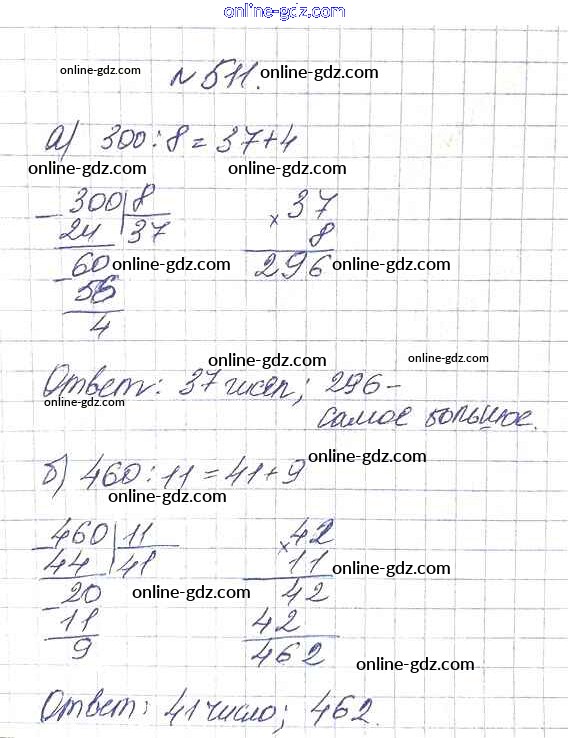 online-gdz.com
online-gdz.com
№ 511.
online-gdz.com
а) 300 : 8 = 37 + 4
online-gdz.com
online-gdz.com
300 | 8
- 24 | 37
60
- 56
4
online-gdz.com
37
× 8
296
online-gdz.com
online-gdz.com
online-gdz.com
Ответ: 37 чисел; 296 –
самое большое.
online-gdz.com
б) 460 : 11 = 41 + 9
online-gdz.com
online-gdz.com
460 | 11
- 44 | 41
20
- 11
9
online-gdz.com
42
× 11
42
42
462
online-gdz.com
online-gdz.com
Ответ: 41 число; 462.